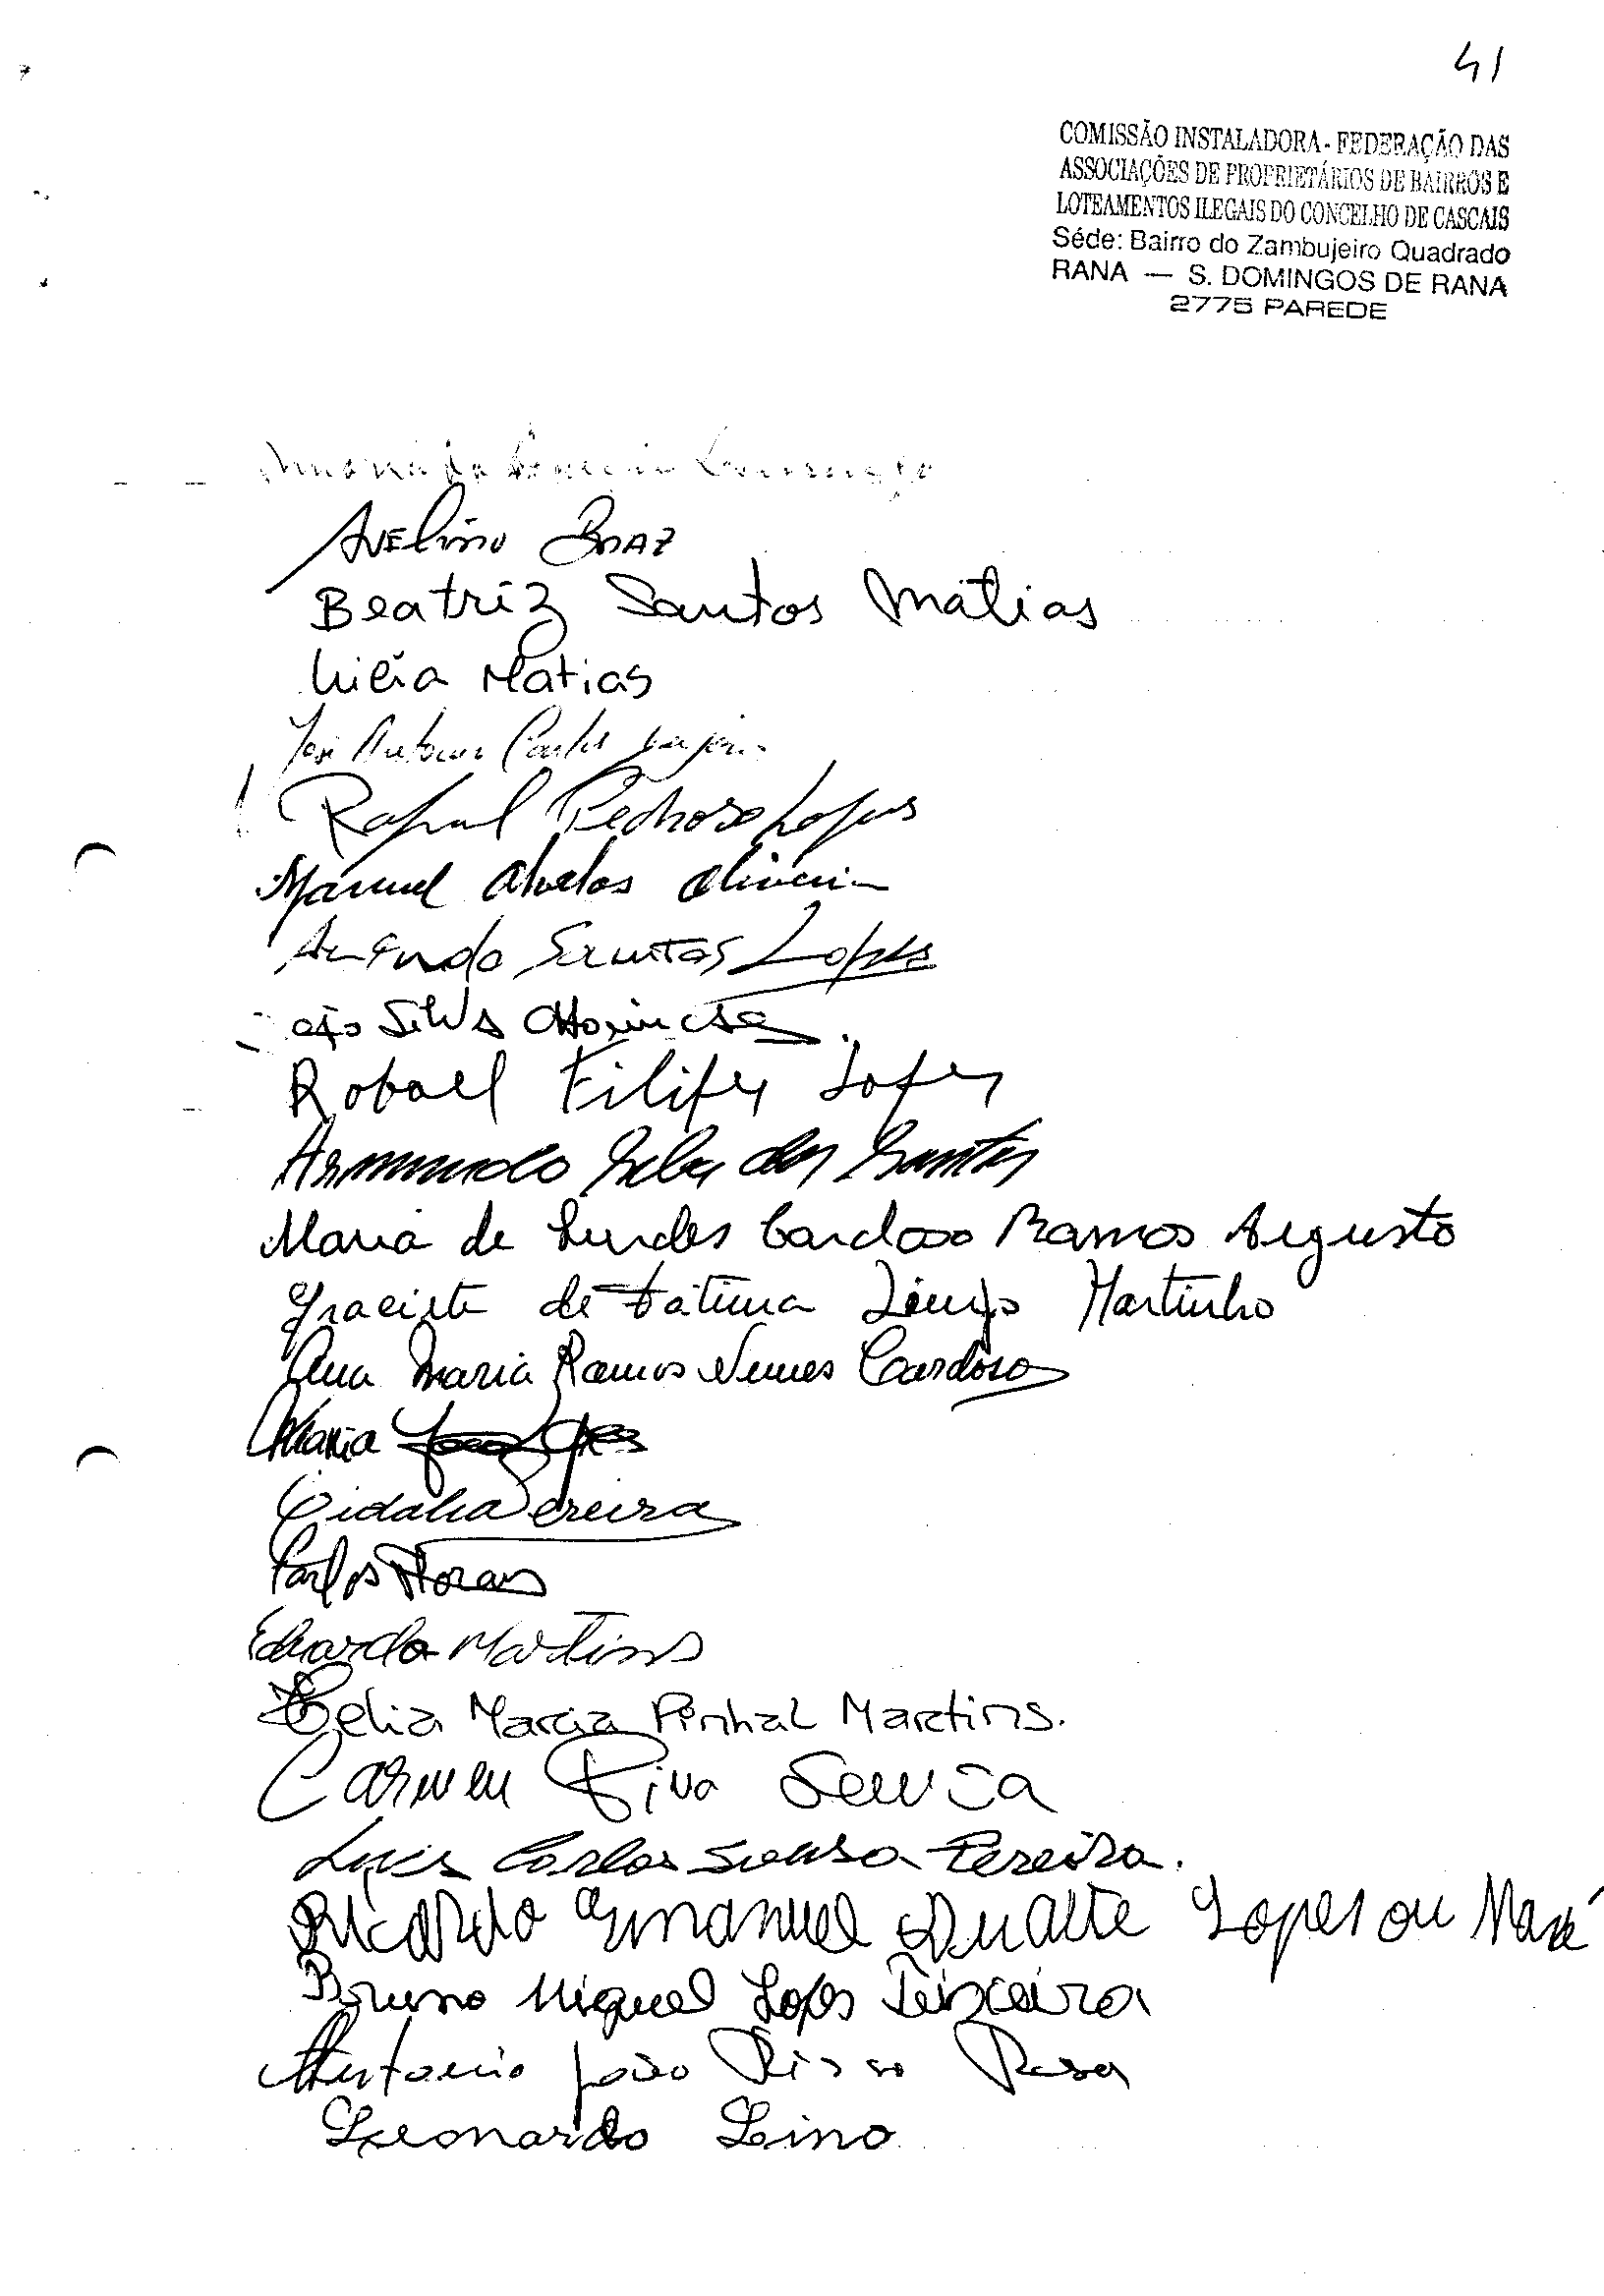 41
COMISSÃO INSTALADORA - FEDERAÇÃO DAS
ASSOCIAÇÕES DE PROPRIETÁRIOS DE BAIRROS E
LOTEAMENTOS ILEGAIS DO CONCELHO DE CASCAIS
Séde: Bairro do Zambujeiro Quadrado
RANA — S. DOMINGOS DE RANA
2775 PAREDE
Avelino Braz
Beatriz Santos Matias
Matias
José Antonio Carlos
Rafael Pedroso Lopes
Manuel Oliveira
Santos Lopes
Silva
Rafael Filipe Lopes
Armando Silva dos Santos
Maria de Lurdes Cardoso Ramos Augusto
de Fátima Martinho
Ana Maria Ramos Nunes Cardoso
Maria
Cidalia Pereira
Carlos Morais
Eduardo Martins
Celia Maria Pinhal Martins.
Carmen Sousa
Luis Carlos Sousa Pereira.
Ricardo Emanuel Duarte Lopes ou
Bruno Miguel Lopes Teixeira
Antonio João Rosa
Leonardo Lino